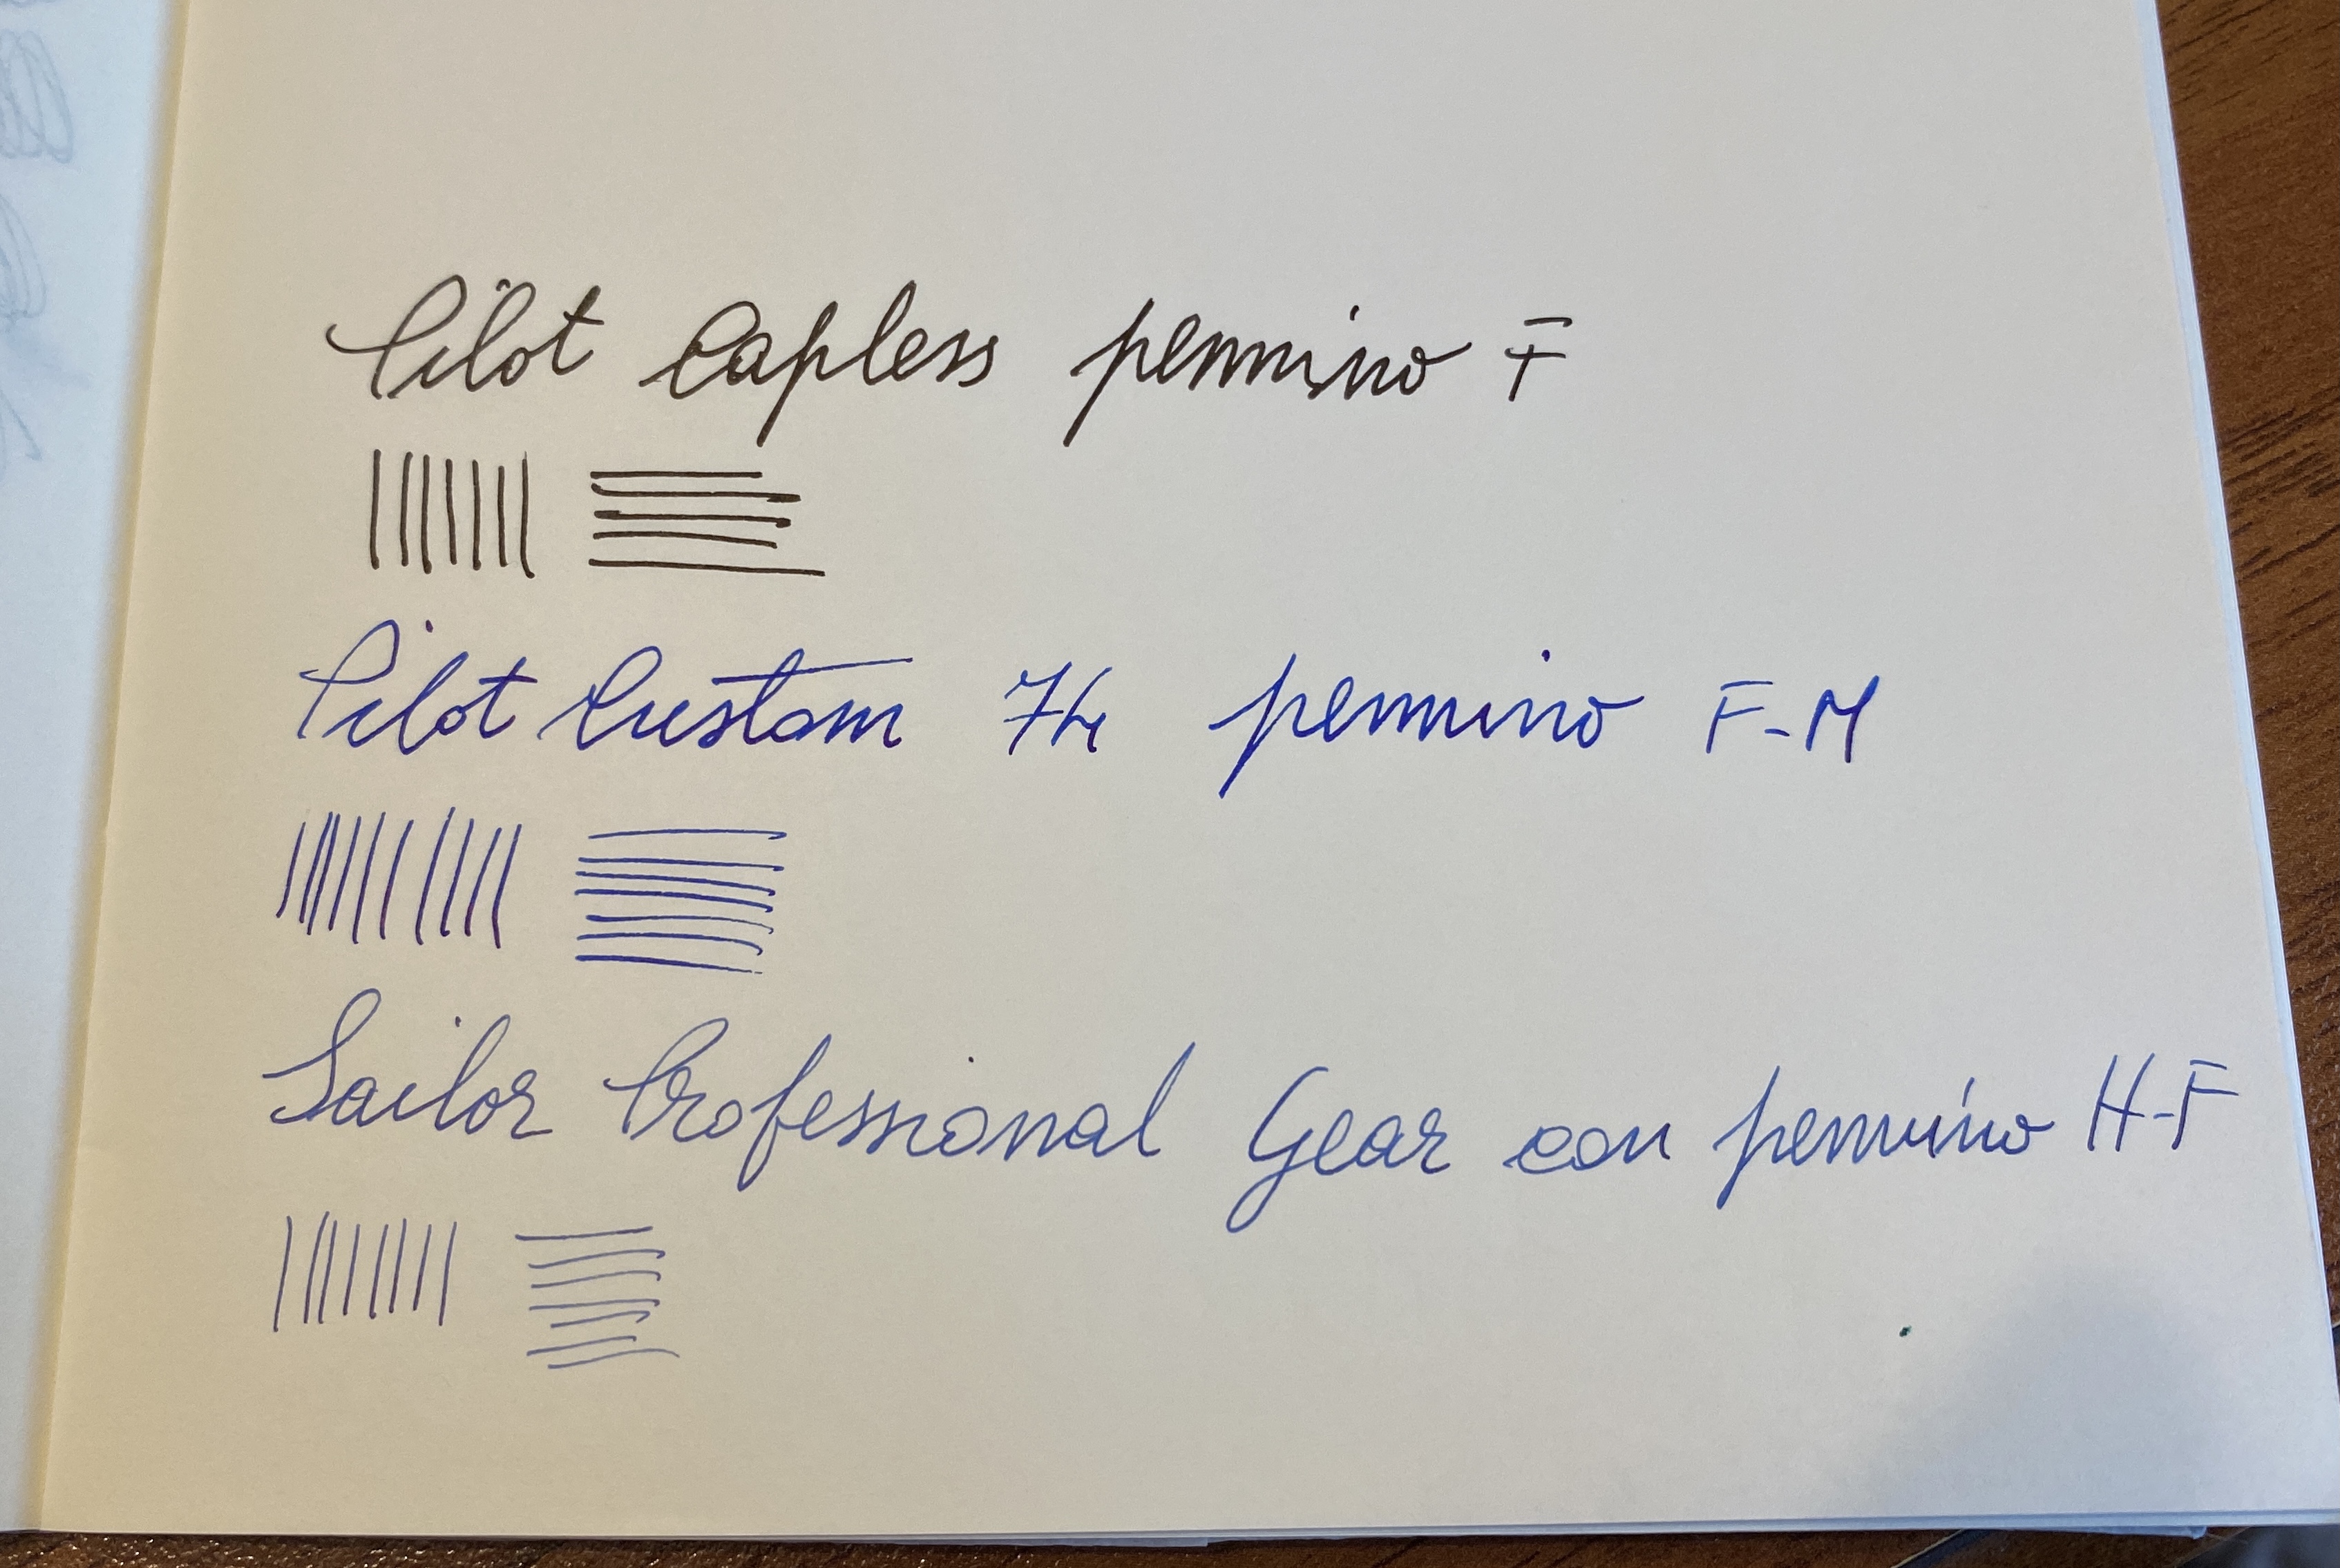 Pilot Capless pennino F
Pilot Custom 74 pennino F-M
Sailor Professional Gear con pennino H-F